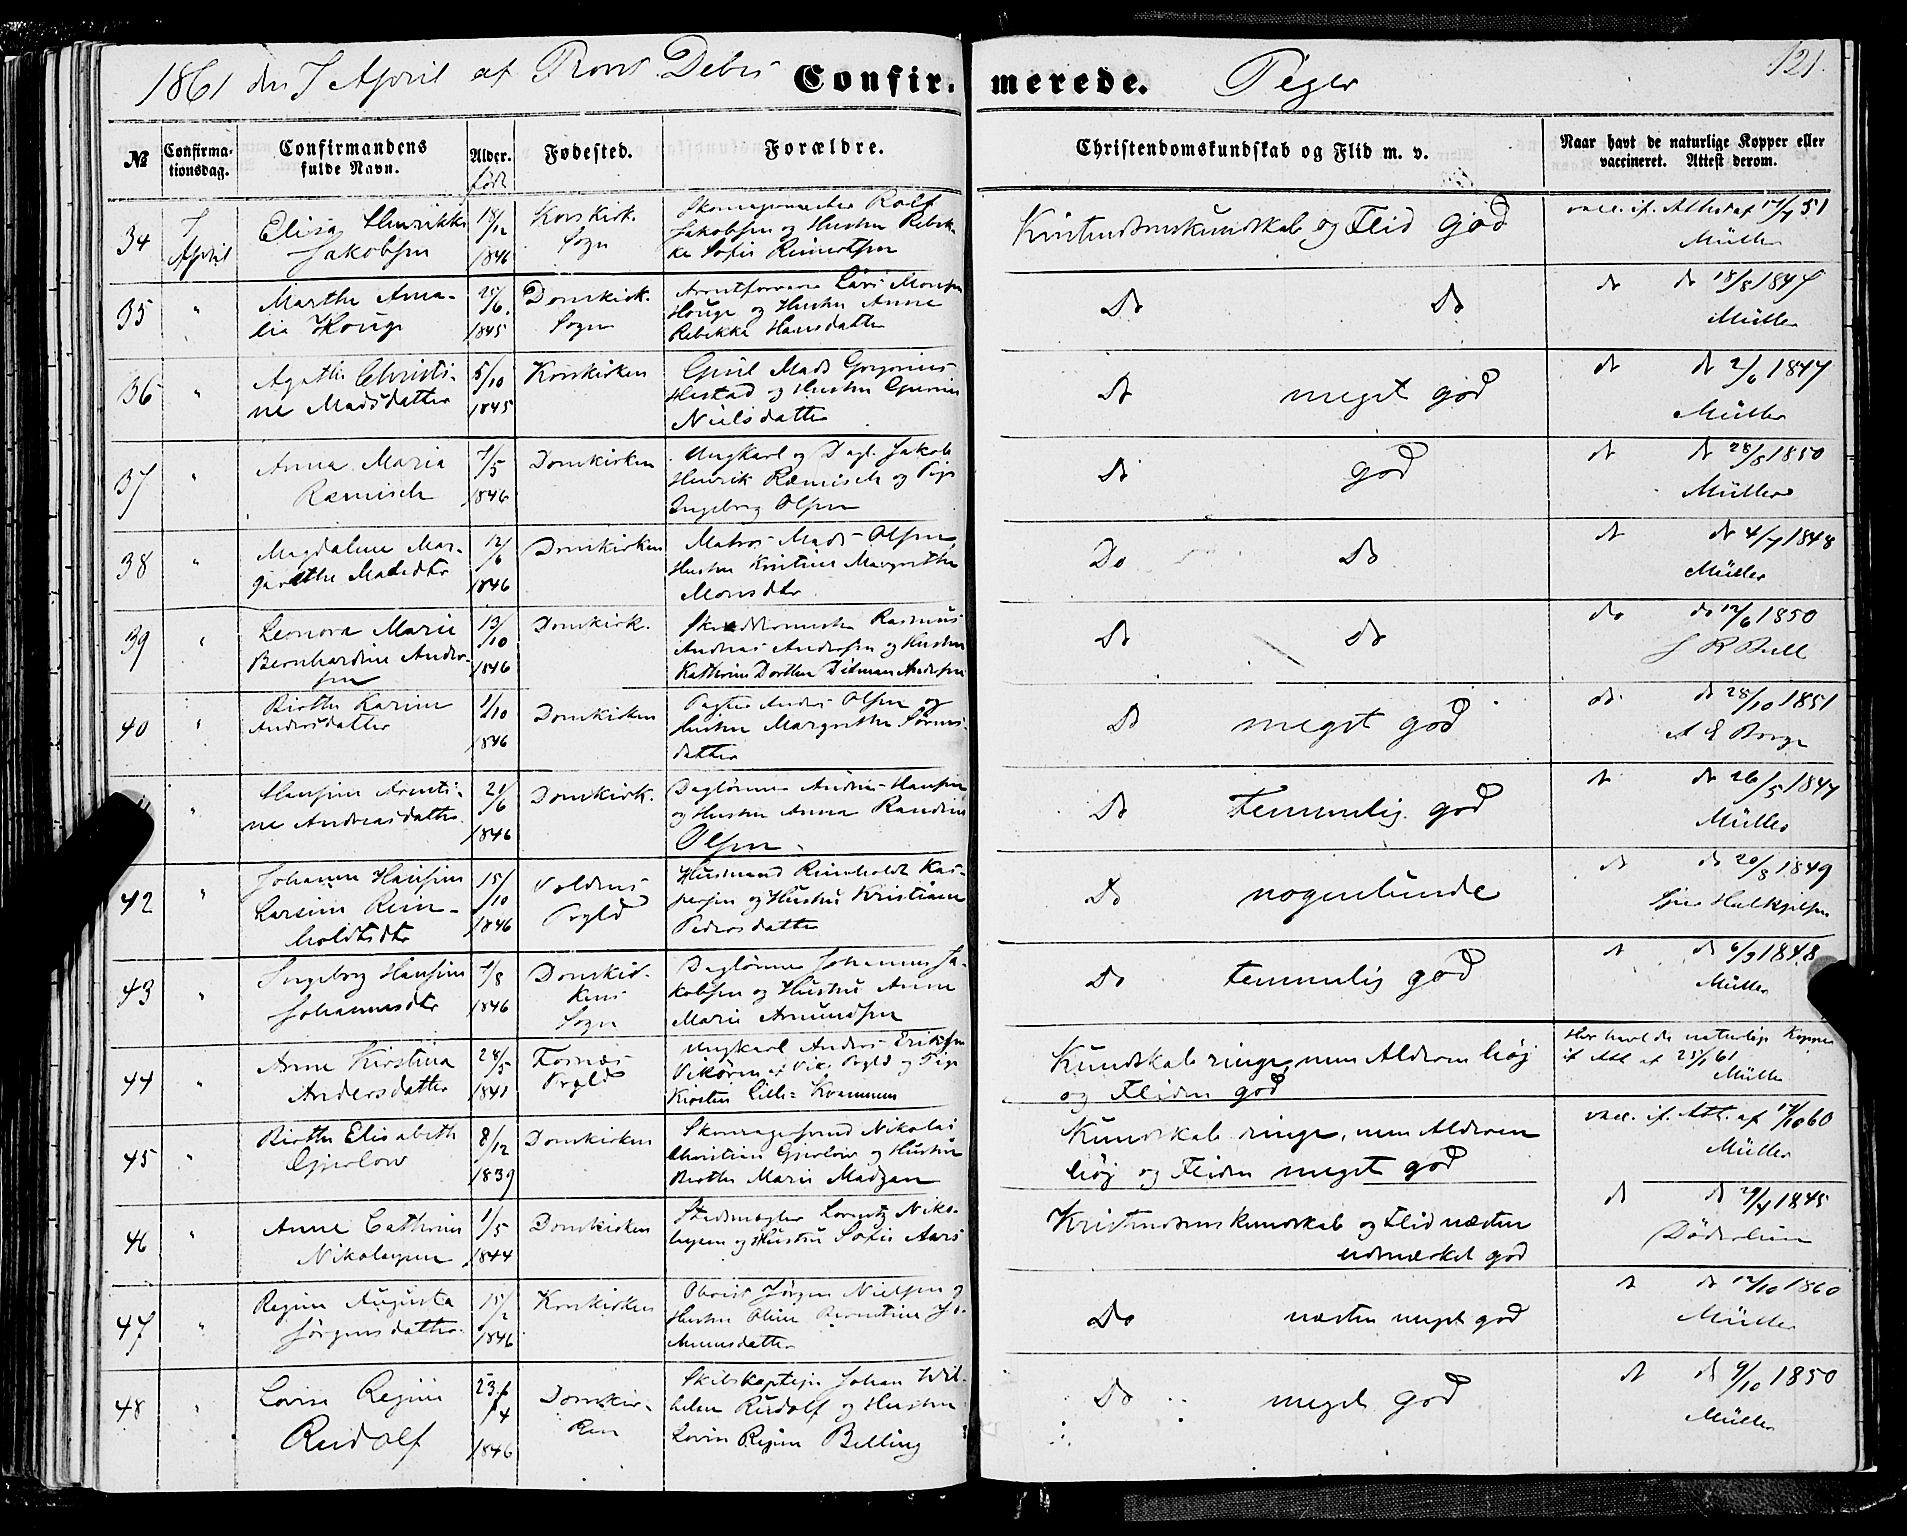 1861 den 7 April af Provst Debes Confir- merede. Piger 121.
№ Confirma-tionsdag. Confirmandens fulde Navn. Alder. født Fødested. Forældre. Christendomskundskab og Flid m. v. Naar havt de naturlige Kopper eller vaccineret. Attest derom.
34 7 April Elisa Henrikke 18/12 Korskirk. Skomagermester Rolf Kristendomskundskab og Flid god vacc. if. Attest af 17/7 51
Jakobsen 1846 Sogn Jakobsen og Hustru Rebek- Müller
ka Sofie Reinertsen
35 " Marthe Ama- 25/6 Domkirk. Lars Monsen Do Do do do 18/8 1847
lie Houge 1845 Sogn Houge og Hustru Anne Müller
Rebekka Hansdatter
36 " Agathe Christi- 5/10 Korskirken Mads Gregorius Do meget god do do 2/6 1847
ne Madsdatter 1845 Hestad og Hustru Gjurine Müller
Nielsdatter
37 " Anna Maria 7/5 Domkirken Ungkarl og Dagl. Jakob Do god do do 28/8 1850
Ræmisch 1846 Henrik Ræmisch og Pige Müller
Ingeborg Olsen
38 " Magdalene Mar- 12/6 Domkirken Matros Mads Olsen, Do Do do do 4/7 1848
grethe Madsdtr 1846 Hustru Kristine Margrethe Müller
Monsdtr.
39 " Leonora Marie 13/10 Domkirk. Skræddermester Rasmus Do Do do do 12/6 1850
Bernhardine Ander- 1846 Andreas Andersen og Hustru J R Bull
sen Kathrine Dorthea Ditman Andersen
40 " Birthe Karine 1/10 Domkirken Anders Olsen og Do meget god do do 28/10 1851
Andersdatter 1846 Hustru Margrethe Sørens-
datter
" Hansine Arenti- 21/6 Domkirk. Dagleønner Andreas Hansen Do Temmelig god do do 26/5 1847
ne Andreasdatter 1846 og Hustru Anna Randine Müller
Olsen
42 " Johanne Hansine 15/10 Voldens Husmand Reinholdt Kas- Do nogenlunde do do 20/8 1849
Larsine Rein- 1846 Prgld persen og Hustru Kristiane
holdtsdtr Pedersdatter
43 " Ingeborg Hansine 7/8 Domkir- Dagleønner Johannes Ja- Do temmelig god do do 6/9 1848
Johannesdtr 1846 kens kobsen og Hustru Anne Müller
Sogn Marie Amundsen
44 " Anne Kirstina 24/5 Fornæs Ungkarl Anders Eriksen Kundskab ringe, men Alderen høj Har havt de naturlige Kopper
Andersdatter 1841 Prgld Vikøren af Vik Prgld og Pige og Fliden god if Att af 25/1 61
Kirsten Lille-Kvammen Müller
45 " Birthe Elisabeth 8/12 Domkirken Skomagersvend Nikolai Kundskab ringe, men Alderen vacc. if. Att. af 17/10 60
Gjerløw 1839 Christian Gjerløw og Hustru høj og Fliden meget god Müller
Birthe Marie Madzan
46 " Anne Cathrine 1/5 Domkirken Stadsmægler Lorentz Niko- Kristendomskundskab og Flid næsten do do 29/4 1845
Nikolaysen 1844 laysen og Hustru Sofie Aars udmærket god Døderlein
47 " Regine Augusta 15/2 Korskirken Jørgen Nielsen og Do næsten meget god do do 12/10 1860
Jørgensdatter 1846 Hustru Oline Berntine Jo- Müller
hannesdatter
48 " Lovise Regine 23/4 Domkir- Skibskaptejn Johan Wil- Do meget god do do 9/10 1850
Rudolf 1846 ken helm Rudolf og Hustru Müller
Lovise Regine Billing